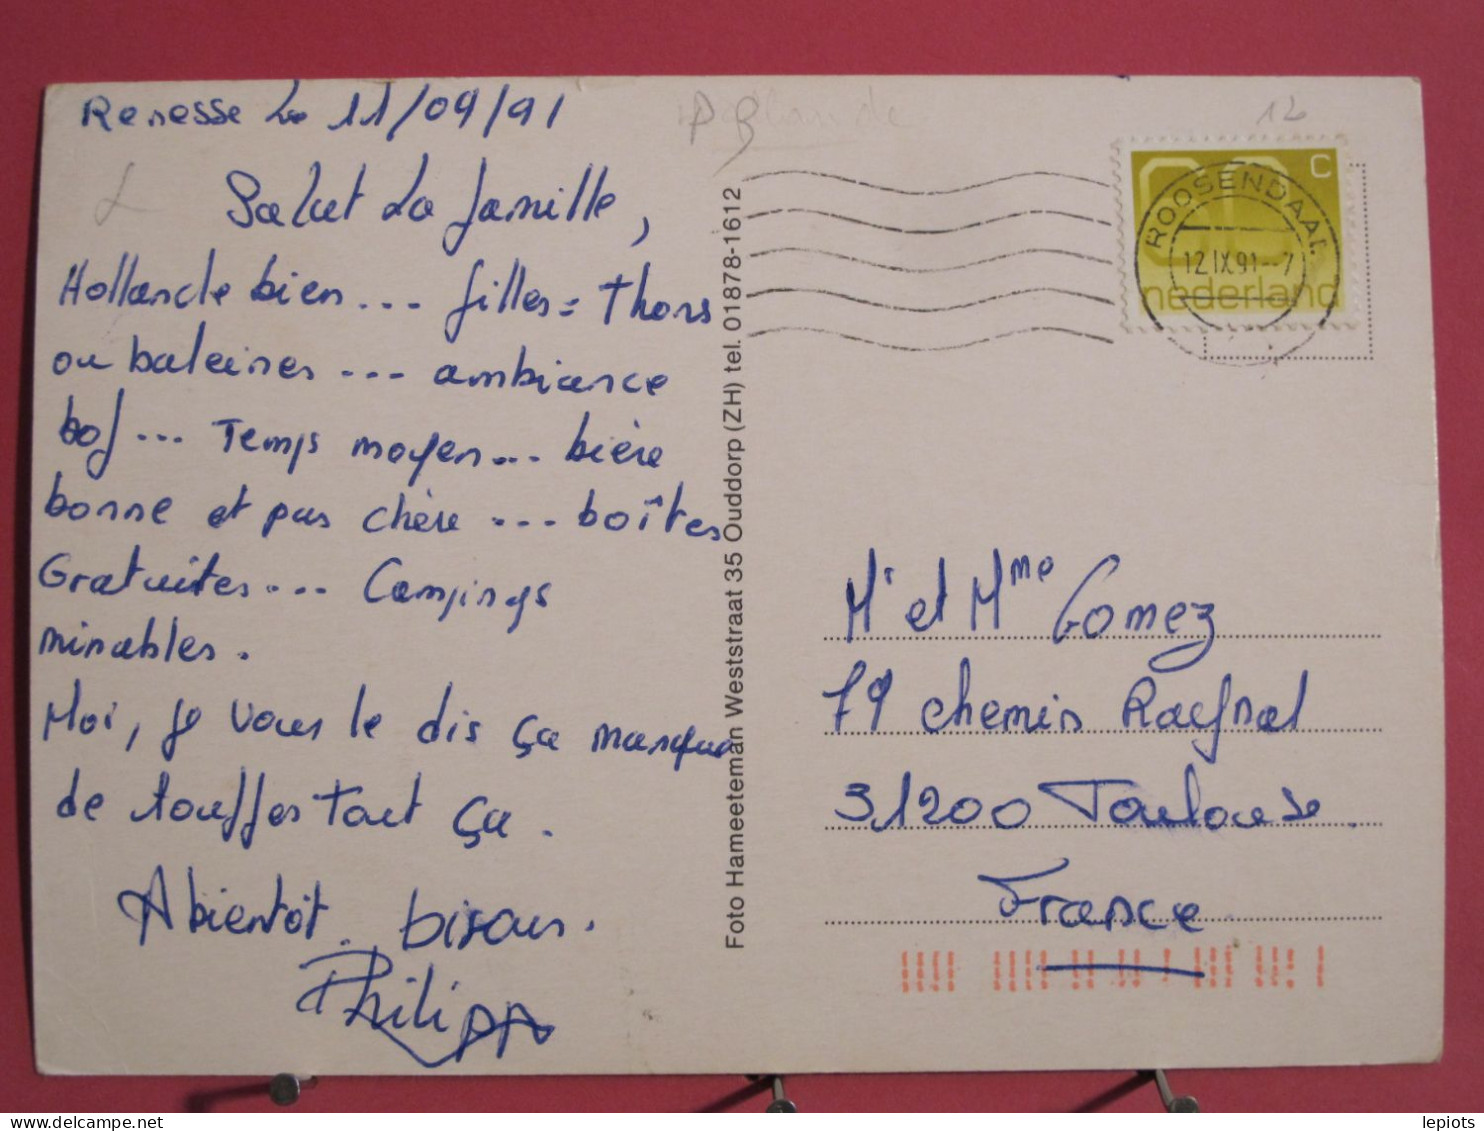 Renesse Le 11/09/91
Salut La famille,
Hollande bien... filles = Thons
ou baleines... ambiance
bof... Temps moyen... bière
bonne et pas chère... boîtes
Gratuites... Campings
minables.
Moi, je vous le dis ça manque
de touffes tout ça.
A bientôt. bisous.
Philipp
Foto Hameeteman Weststraat 35 Ouddorp (ZH) tel. 01878-1612
12
c
ROOSENDAAL
12.IX.91.-7
nederland
Mr et Mme Gomez
79 chemin Raynal
31200 Toulouse.
France
lepiots